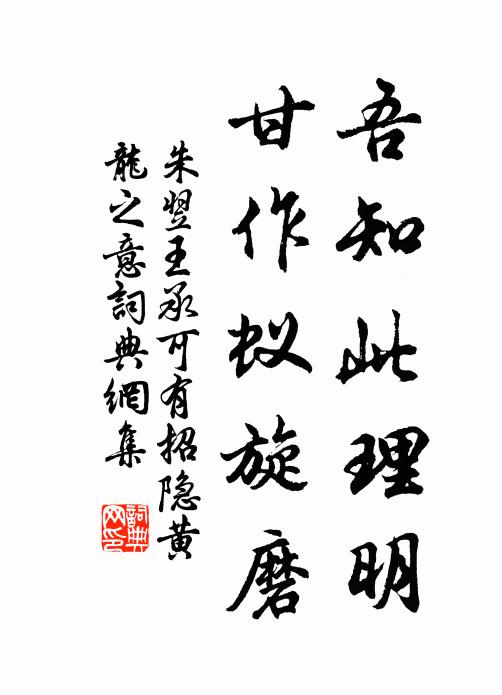 吾知此理明
甘作蚁旋磨
朱翌王承可有招隐黄
龍之意詞典網集
詞典
网印